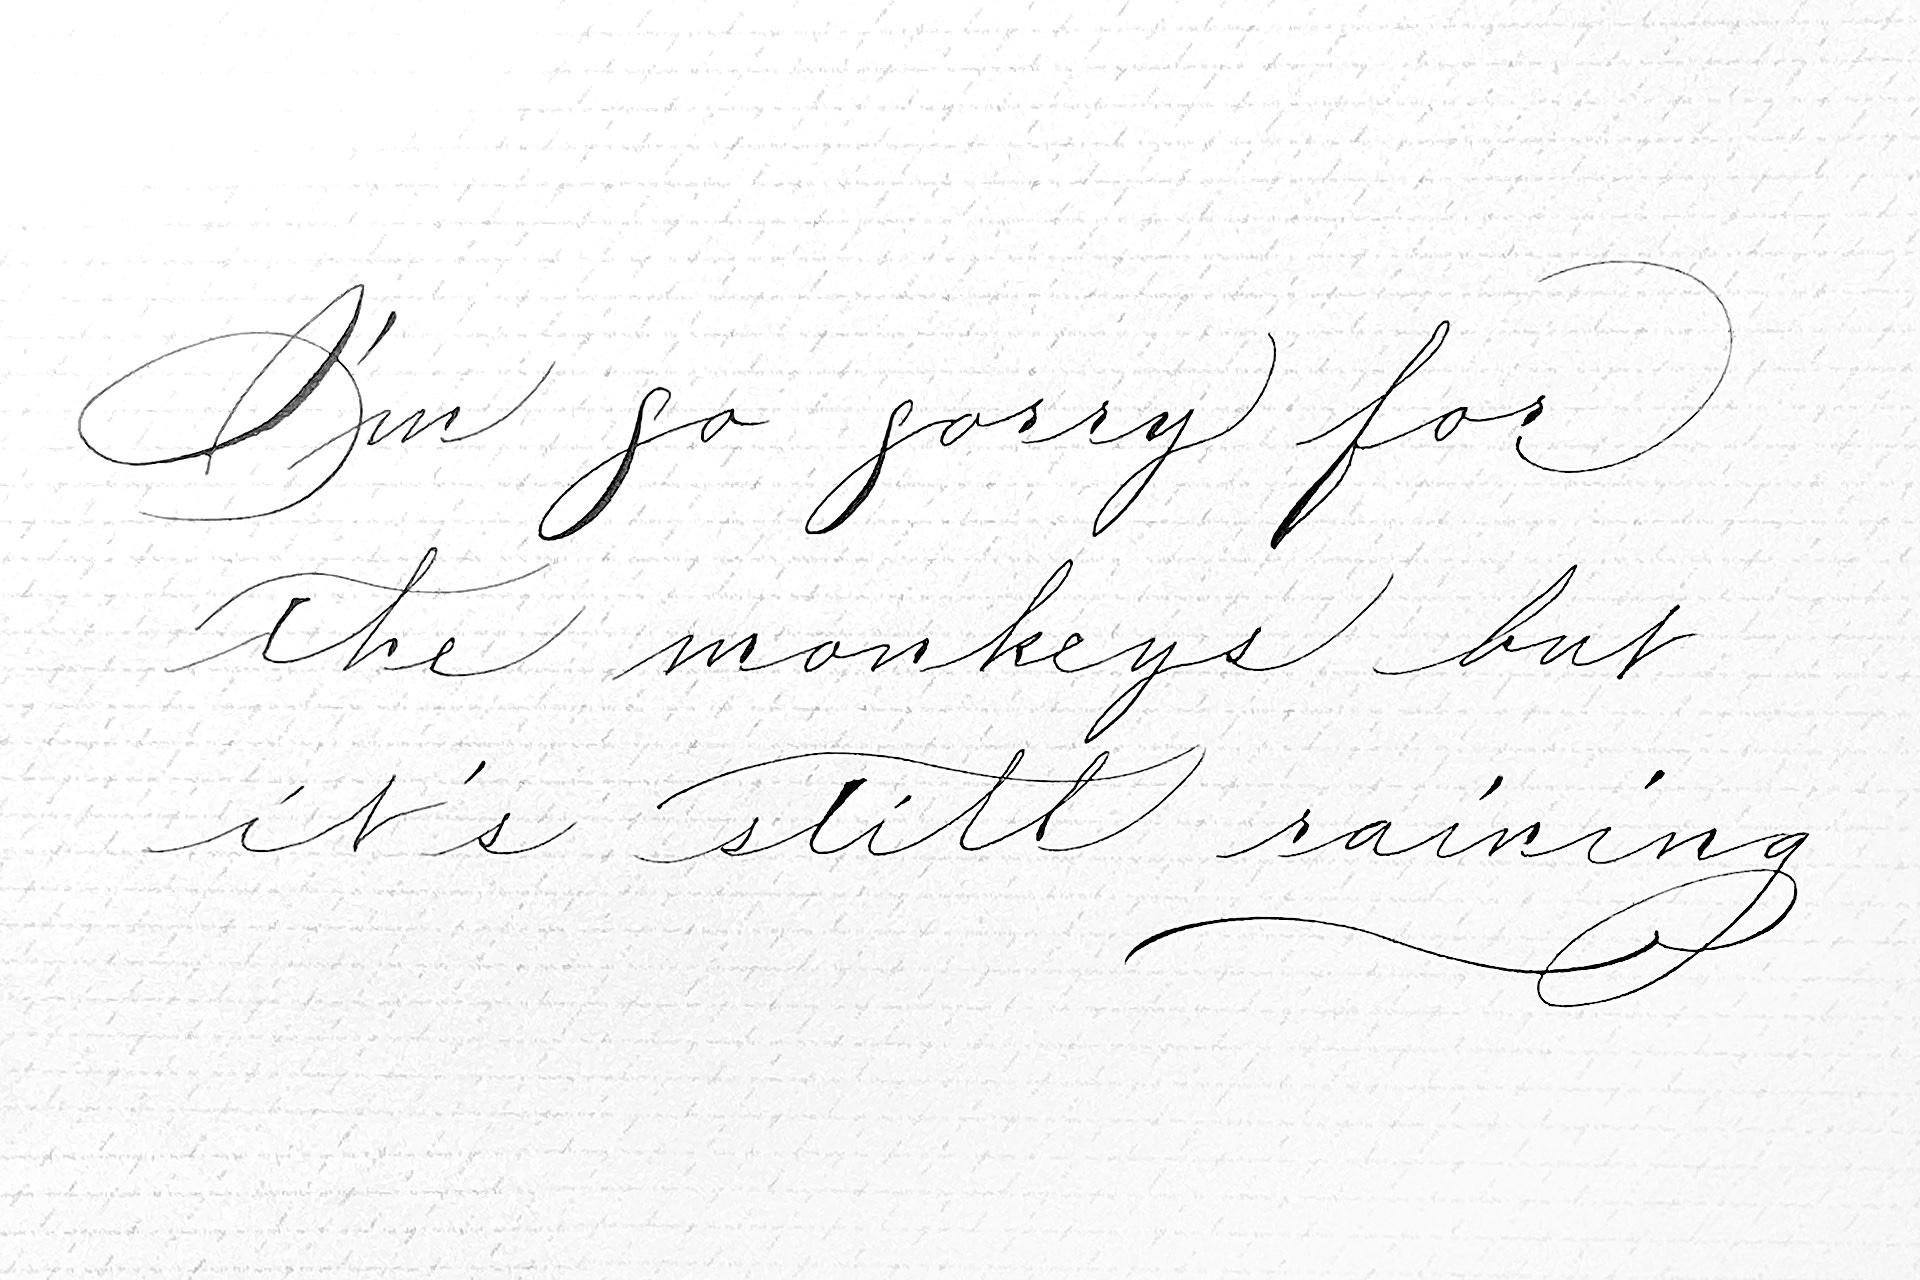 I'm so sorry for
the monkeys but
it's still raining